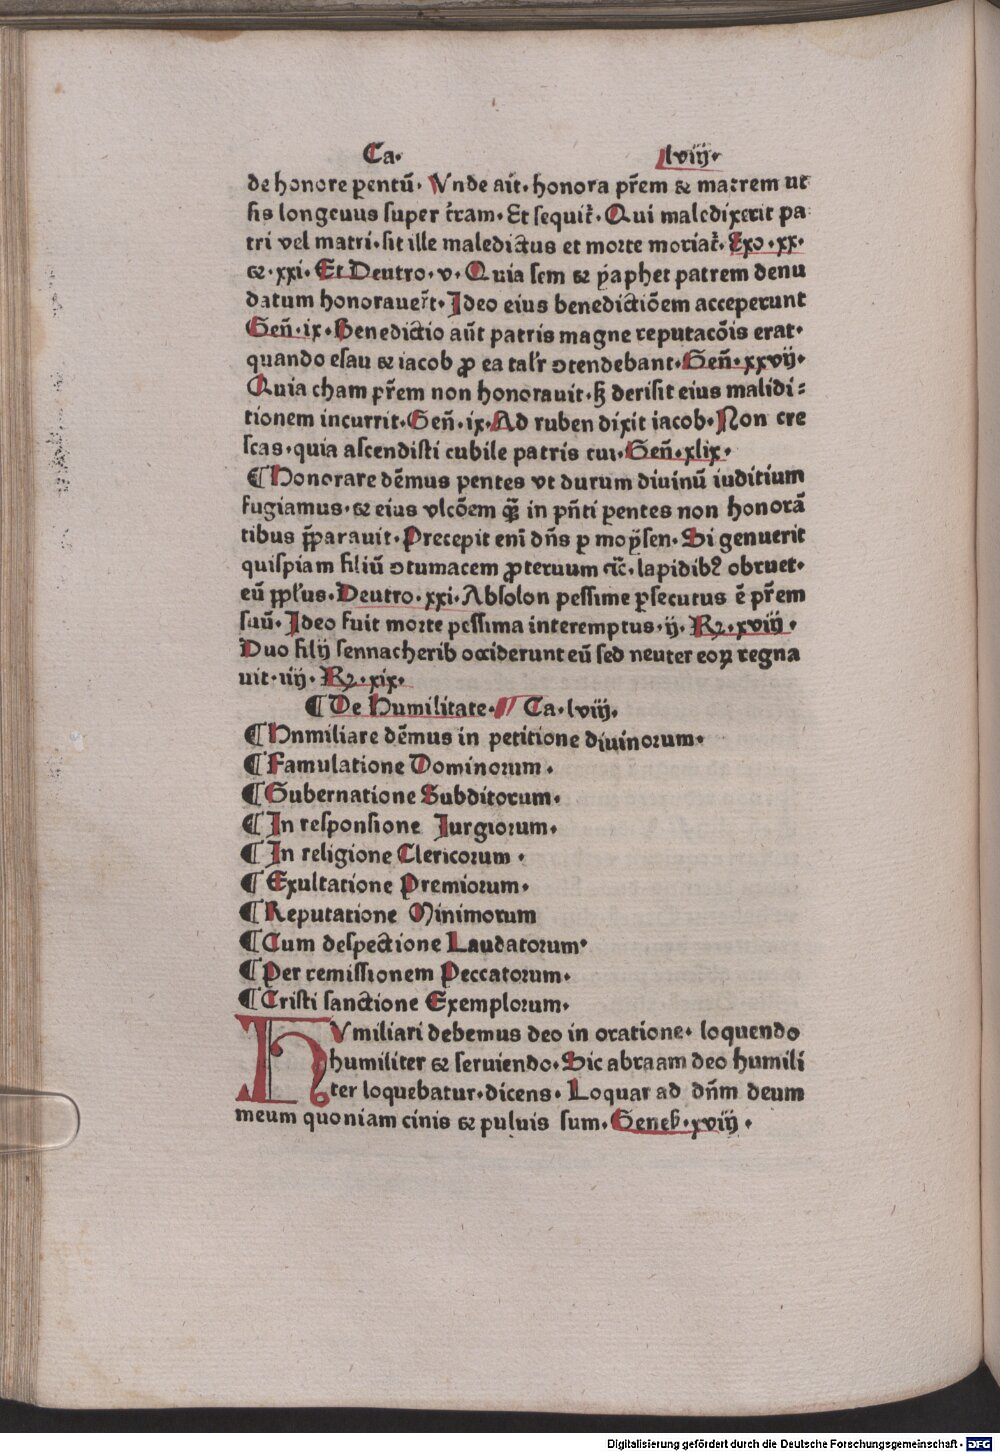 Ca. lviij.
de honore pentū. Vnde ait̄. honora pr̄em ⁊ matrem ut
sis longeuus super tr̄am. Et sequit̄. Qui maledixerit pa
tri vel matri. sit ille maledictus et morte moriat̄. Exo. xx.
⁊. xxi. Et Deutro. v. Quia sem ⁊ yaphet patrem denu
datum honorauer̄t. Ideo eius benedictiōem acceperunt
Geñ. ix. Benedictio aūt patris magne reputacōis erat.
quando esau ⁊ iacob ꝓ ea talr̄ ꝯtendebant. Geñ. xxvij.
Quia cham pr̄em non honorauit. sꝫ derisit eius maledi=
tionem incurrit. Geñ. ix. Ad ruben dixit iacob. Non cre
scas. quia ascendisti cubile patris tui. Geñ. xlix.
¶ Honorare dēmus pentes vt durum diuinū iuditium
fugiamus. ⁊ eius vlcōem qꝫ in pn̄ti pentes non honorā
tibus p̄parauit. Precepit eni dn̄s p moysen. Si genuerit
quispiam filiū ꝯtumacem ꝓteruum ⁊c̄. lapidibꝫ obruet.
eū ppl̄us. Deutro. xxi. Absolon pessime psecutus ē pr̄em
suū. Ideo fuit morte pessima interemptus. ij. Rꝫ. xviij.
Duo filij sennacherib occiderunt eū sed neuter eoꝝ regna
uit. iiij. Rꝫ. xix.
¶ De Humilitate. Ca. lviij.
¶ Hnmiliare dēmus in petitione diuinorum.
¶ Famulatione Dominorum.
¶ Gubernatione Subditorum.
¶ In responsione Jurgiorum.
¶ In religione Clericorum.
¶ Exultatione Premiorum.
¶ Reputatione Minimorum
¶ Cum despectione Laudatorum.
¶ Per remissionem Peccatorum.
¶ Cristi sanctione Exemplorum.
HVmiliari debemus deo in oratione. loquendo
humiliter ⁊ seruiendo. Sic abraam deo humili
ter loquebatur. dicens. Loquar ad dn̄m deum
meum quoniam cinis ⁊ puluis sum. Genes. xviij.
Digitalisierung gefördert durch die Deutsche Forschungsgemeinschaft - DFG